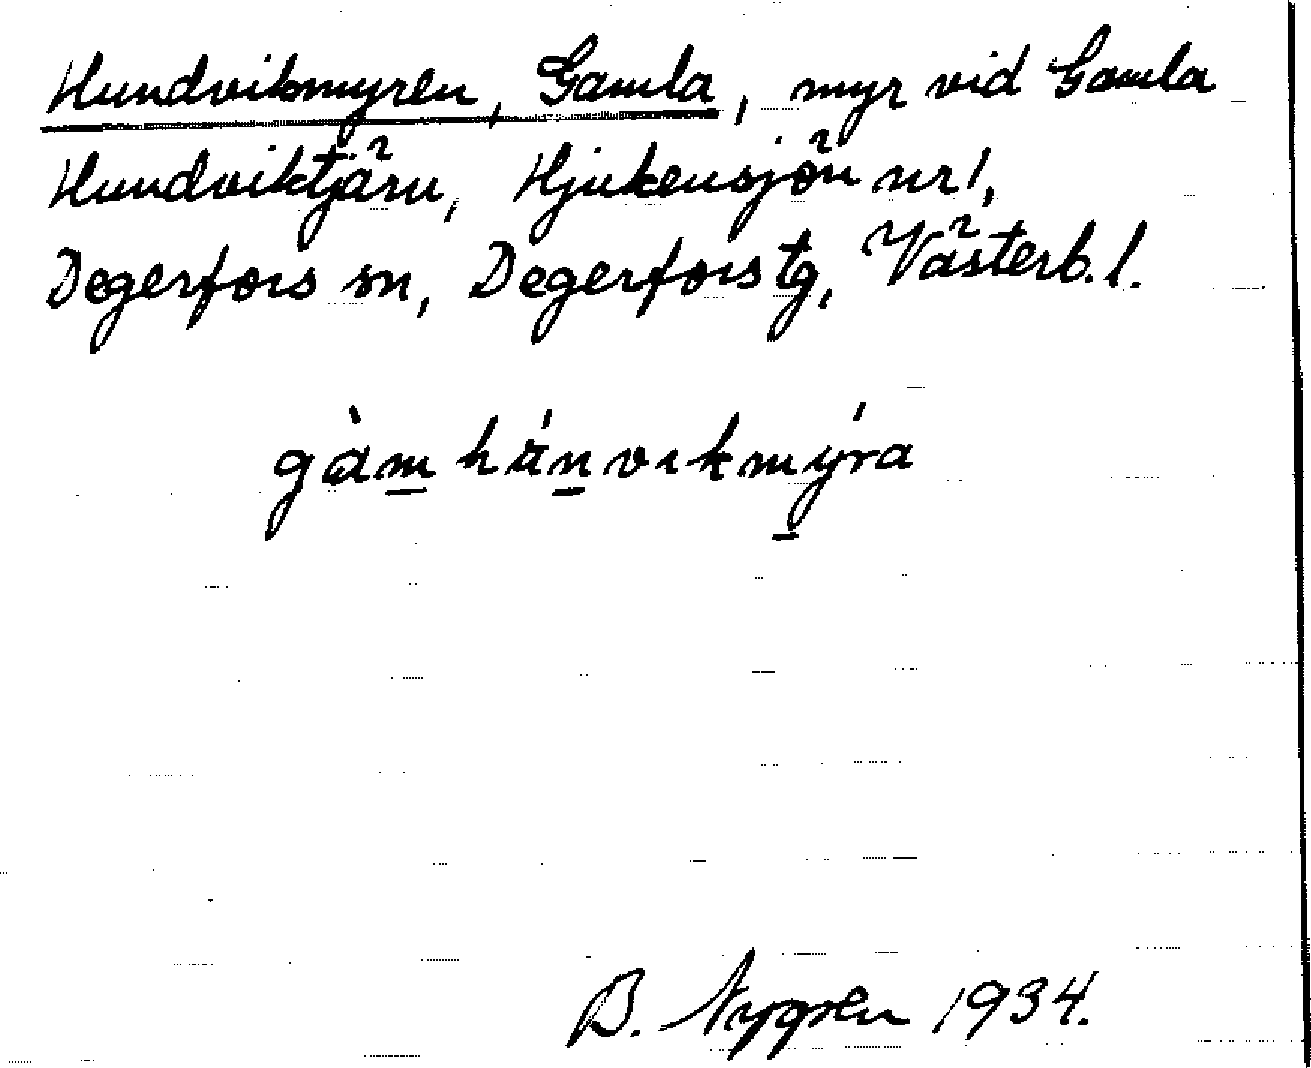 Hundvikmyren, Gamla, myr vid Gamla
Hundviktjärn, Hjukensjön nr 1,
Degerfors sn, Degerfors tg, Västerb. l.
gàm húnvıkmýra
B. Nygren 1934.